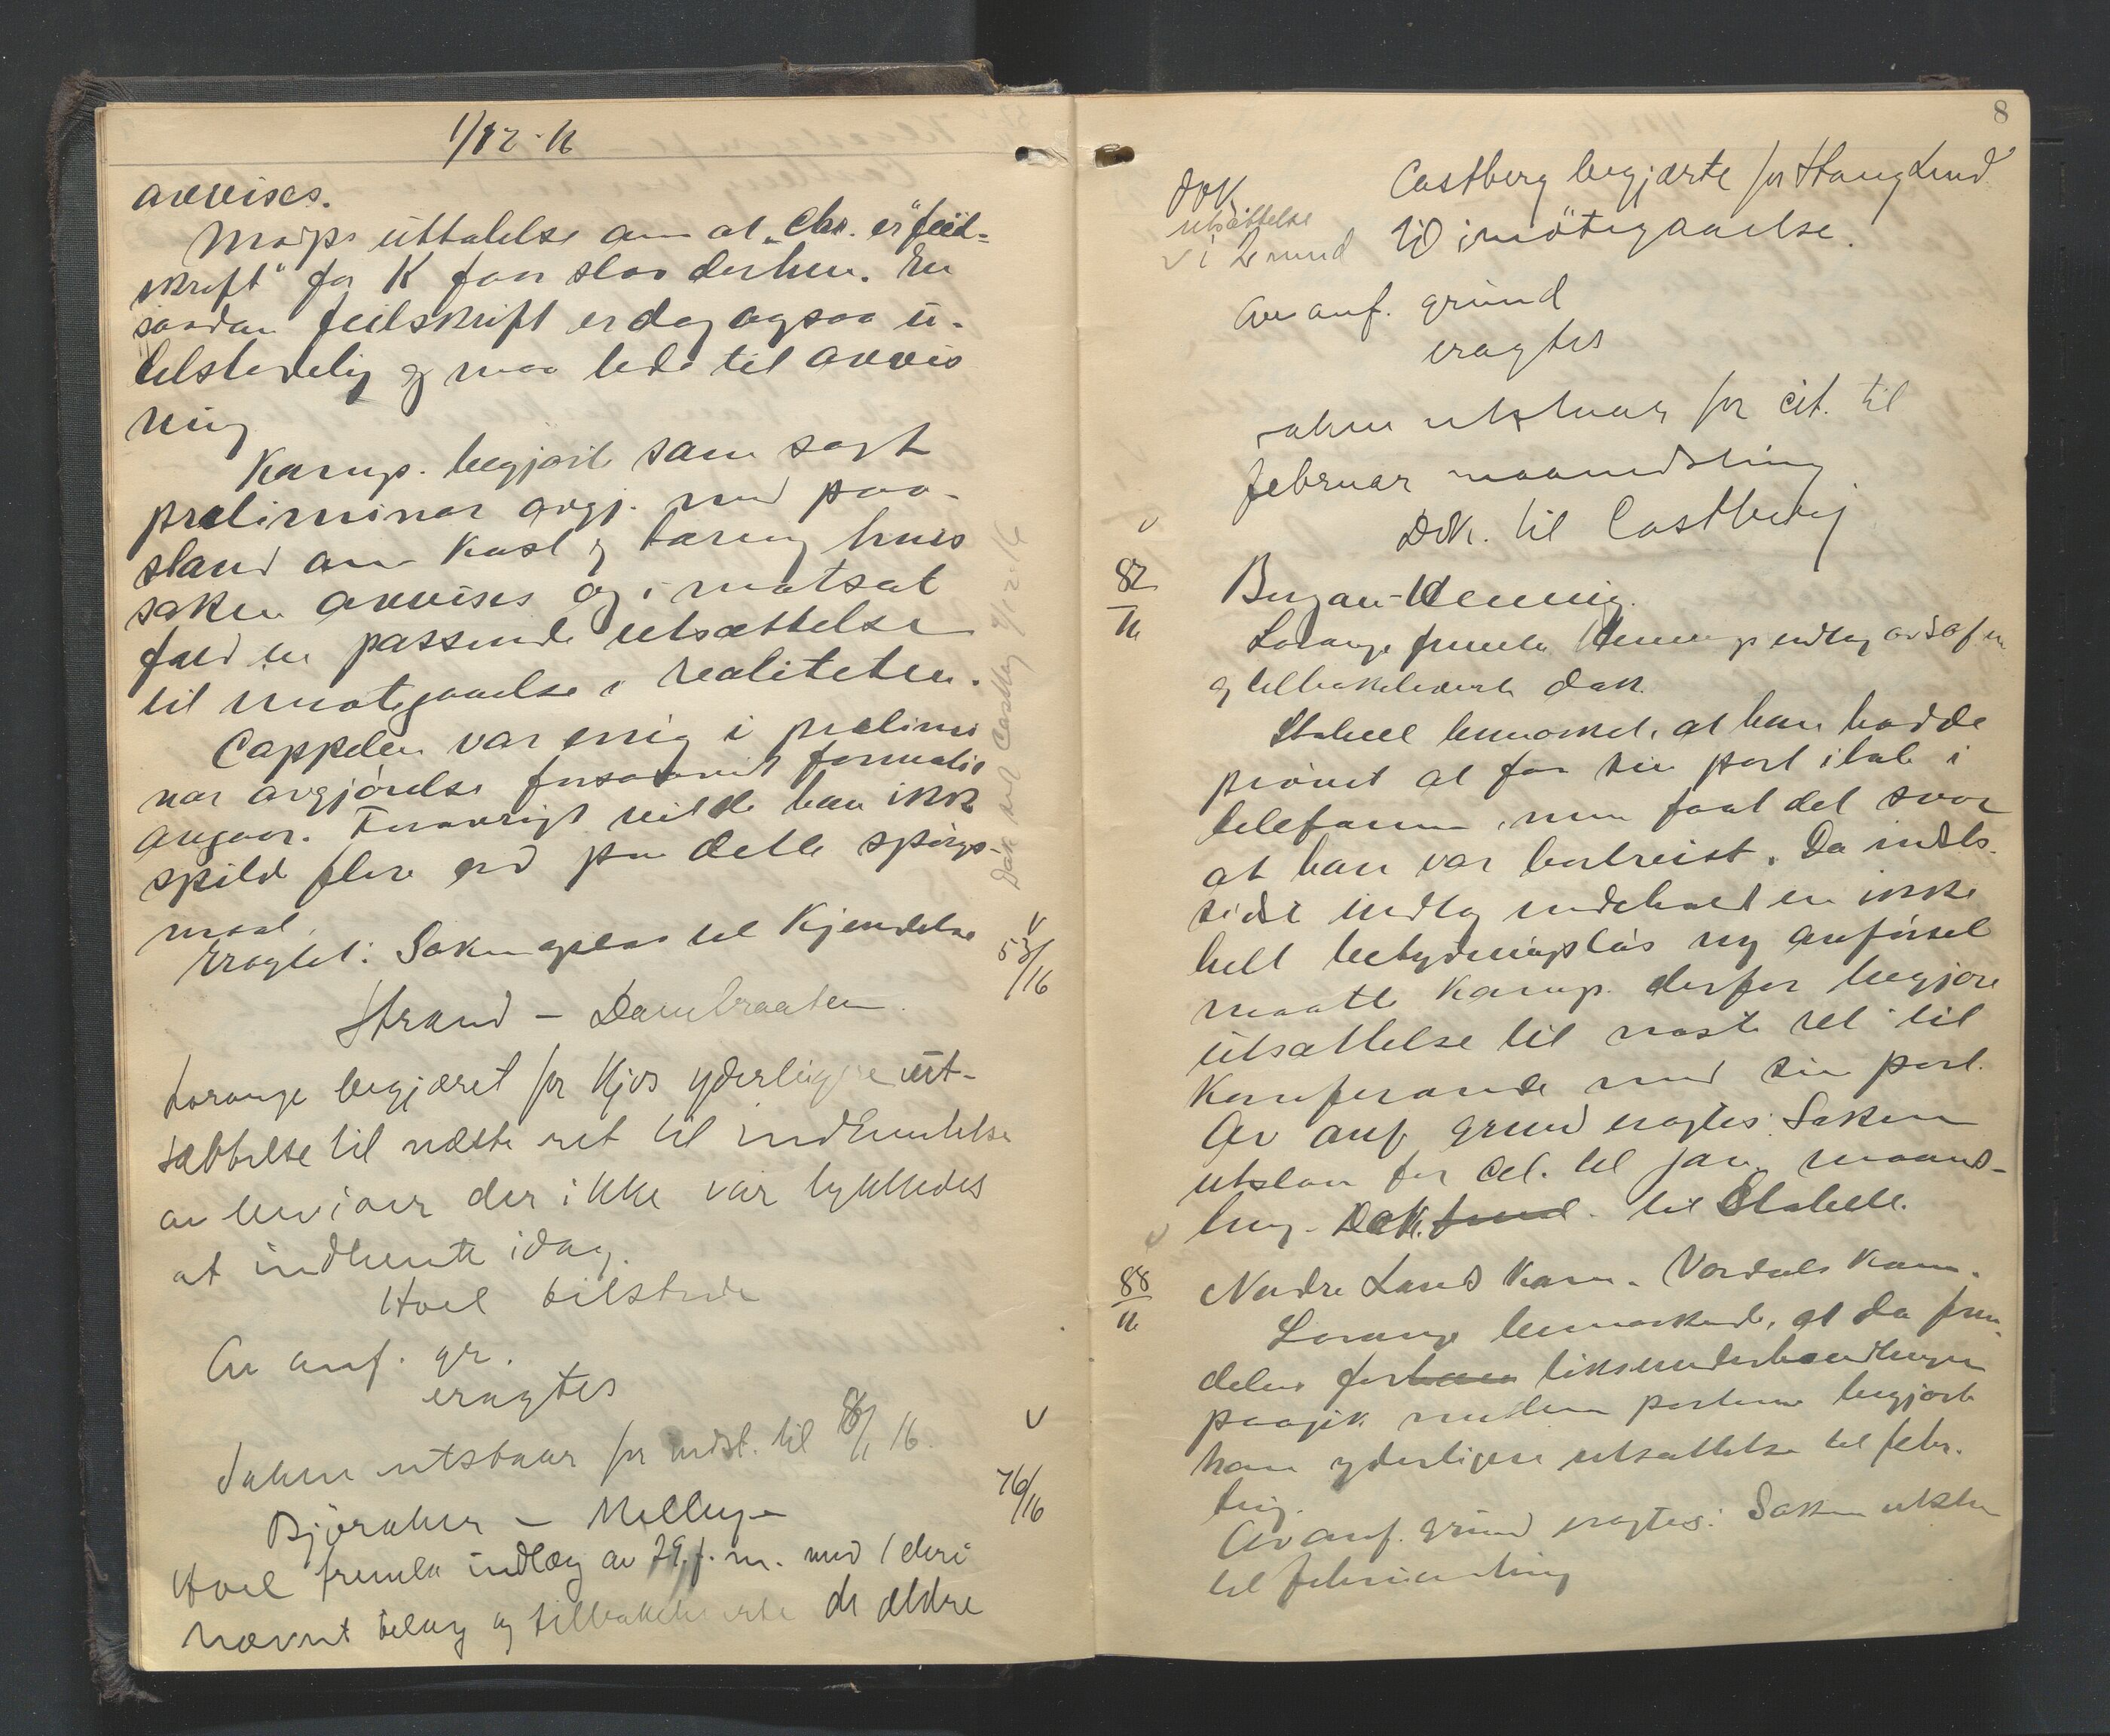 1/12-16
avvises.
Morps uttalelse om at "Chr. er "feil-
skrift" for K faar staa derhen. En
saadan feilskrift er dog ogsaa u-
tilstedelig og maa lede til avvis
ning
Komp. begjærte som sagt
præliminær avgj. med paa-
stand om kost og tæring hvis
saken avvises og i motsat
fald en passende utsættelse
til imøtegaaelse i realiteten.
Cappelen var enig i prelimi
nær avgjørelse forsaavidt formalia
angaar. Forøvrigt vilde han ikke
spilde flere ord paa dette spørgs-
maal.
Eragtet: Saken optas til Kjendelse
Dok til Castberg 1/12-16
53/16
Strand – Dambraaten
Lorange begjæret for Kjos yderligere ut-
sættelse til næste ret til indhentelse
av bevisser der ikke var lykkedes
at indhente idag.
Hoel tilstede
Av anf. gr.
eragtes
Saken utstaar for indst. til 1/16
76/16
Bjøraker –
Hoel fremla indlæg av 29. f. m. med 1 deri
nævnt bilag og tilbakeleverte de ældre
8
dok
utsættelse
i 2 mnd
Castberg begjærte for
til imötegaaelse.
Av anf. grund
eragtes
saken utstaar for cit. til
februar maanedsting
Dok. til Castberg
82/16
Lorange fremla Hennigs indlæg av
og tilbakeleverte dok.
Stabell bemerket, at han hadde
prøvet at faa sin part i tale i
telefonen, men faat det svar
at han var bortreist. Da indst.
sidste indlæg indeholdt en ikke
helt betydningsløs ny anførsel
maatte Komp. derfor begjære
utsættelse til næste ret til
Konferanse med sin part.
Av anf. grund eragtes: Saken
utstaar for cit. til jan. maaneds-
ting. Dok. til Stabell.
88/16
Nordre Land Kom. – Vardals Kom.
Lorange bemerkede, at da frem
deles forliksunderhandlinger
paagik mellem parterne begjærte
han yderligere utsættelse til febr.
ting.
Av anf. grund eragtes: Saken utstaar
til februarting